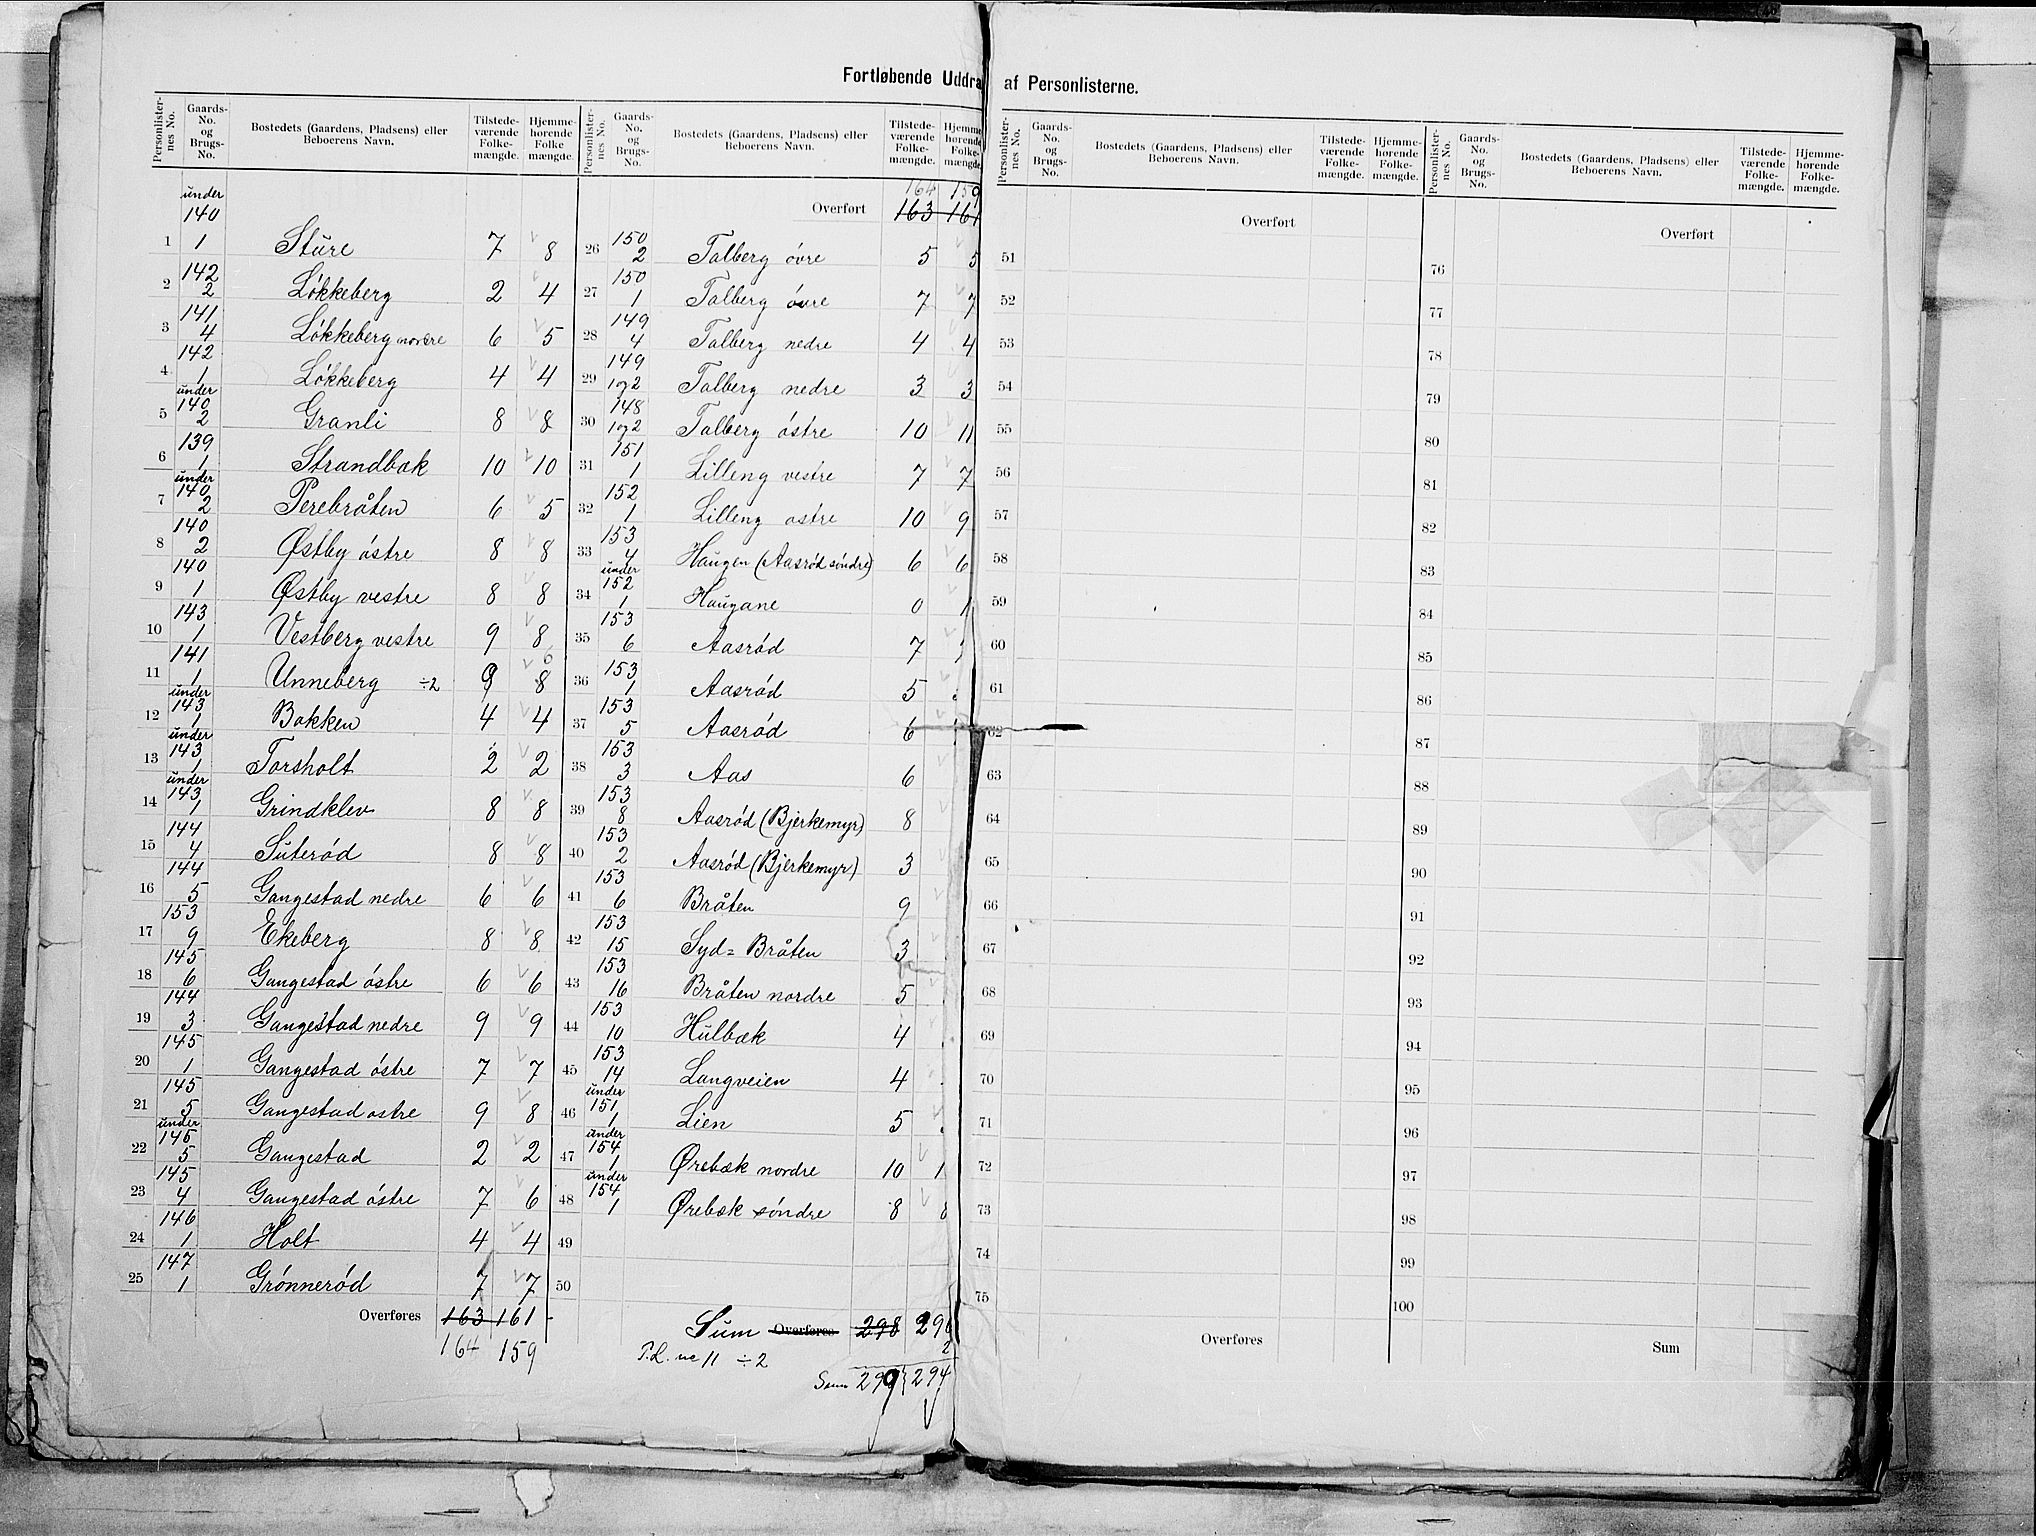 Fortløbende Uddra af Personlisterne.
Personlister-nes No. | Gaards-No. og Brugs-No. | Bostedets (Gaardens, Pladsens) eller Beboerens Navn. | Tilstede-værende Folke-mængde. | Hjemme-hørende Folke mængde.
under 140
1 | 1 | Sture | 7 | 8
2 | 142 2 | Løkkeberg | 2 | 4
3 | 141 4 | Løkkeberg nordre | 6 | 5
4 | 142 1 | Løkkeberg | 4 | 4
5 | under 140 2 | Granli | 8 | 8
6 | 139 1 | Strandbak | 10 | 10
7 | under 140 2 | Perebråten | 6 | 5
8 | 140 2 | Østby östre | 8 | 8
9 | 140 1 | Østby vestre | 8 | 8
10 | 143 1 | Vestberg vestre | 9 | 8
11 | 141 1 | Unneberg ÷2 | 9 | 8 6
12 | under 143 1 | Bakken | 4 | 4
13 | under 143 1 | Torsholt | 2 | 2
14 | under 143 1 | Grindklev | 8 | 8
15 | 144 4 | Suterød | 8 | 8
16 | 144 5 | Gangestad nedre | 6 | 6
17 | 153 9 | Ekeberg | 8 | 8
18 | 145 6 | Gangestad östre | 6 | 6
19 | 144 3 | Gangestad nedre | 9 | 9
20 | 145 1 | Gangestad östre | 7 | 7
21 | 145 5 | Gangestad ostre | 9 | 8
22 | under 145 5 | Gangestad | 2 | 2
23 | 145 4 | Gangestad östre | 7 | 6
24 | 146 1 | Holt | 4 | 4
25 | 147 1 | Grønnerød | 7 | 7
Overføres 163 161
164 159
Personlister-nes No. | Gaards-No. og Brugs-No. | Bostedets (Gaardens, Pladsens) eller Beboerens Navn. | Tilstede-værende Folke-mængde. | Hjemme hørende Folke-mængde.
164 159
Overført 163 161
26 | 150 2 | Talberg övre | 5 | 5
27 | 150 1 | Talberg övre | 7 | 7
28 | 149 4 | Talberg nedre | 4 | 4
29 | 149 1 og 2 | Talberg nedre | 3 | 3
30 | 148 1 og 2 | Talberg östre | 10 | 11
31 | 151 1 | Lilleng vestre | 7 | 7
32 | 152 1 | Lilleng ostre | 10 | 9
33 | 153 4 | Haugen (Aasrød søndre) | 6 | 6
34 | under 152 1 | Haugane | 0 | 1
35 | 153 6 | Aasrød | 7
36 | 153 1 | Aasrød | 5
37 | 153 5 | Aasrød | 6
38 | 153 3 | Aas | 6
39 | 153 8 | Aasrød (Bjerkemyr) | 8
40 | 153 2 | Aasrød (Bjerkemyr) | 3
41 | 153 6 | Bråten | 9
42 | 153 15 | Syd= Bråten | 3
43 | 153 16 | Bråten nordre | 5
44 | 153 10 | Hulbæk | 4
45 | 153 14 | Langveien | 4
46 | under 151 1 | Lien | 5
47 | under 154 1 | Ørebæk nordre | 10 | 1
48 | under 154 1 | Ørebæk søndre | 8 | 8
49
50
Sum Overføres 298 296
P.L. no 11 ÷2 2
Sum 299 294
Personlister-nes No. | Gaards-No. og Brugs-No. | Bostedets (Gaardens, Pladsens) eller Beboerens Navn. | Tilstede-værende Folke-mængde. | Hjemme-hørende Folke-mængde.
Overført
51
52
53
54
55
56
57
58
59
60
61
62
63
64
65
66
67
68
69
70
71
72
73
74
75
Overføres
Personlister-nes No. | Gaards-No. og Brugs-No. | Bostedets (Gaardens, Pladsens) eller Beboerens Navn. | Tilstede-værende Folke-mængde. | Hjemme-hørende Folke-mængde.
Overført
76
77
78
79
80
81
82
83
84
85
86
87
88
89
90
91
92
93
94
95
96
97
98
99
100
Sum